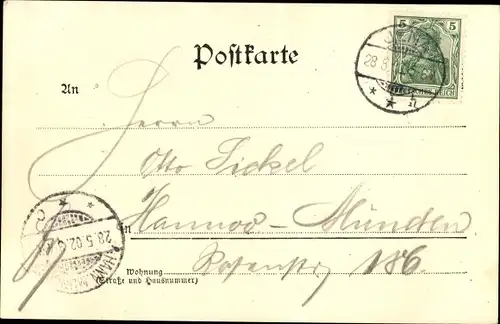 Postkarte
5
28.5.
DEUTSCHES REICH
An
Herrn
Otto Sickel
in
Hannov-Münden
28.5.02.
Wohnung
(Straße und Hausnummer)
Rosenstr 186